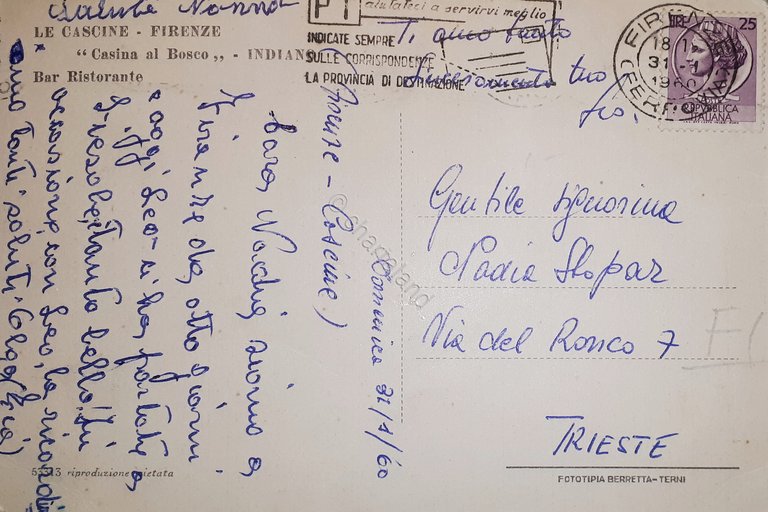 Saluta Nonna
LE CASCINE - FIRENZE
"Casina al Bosco„ - INDIANO
Bar Ristorante
PT
aiutateci a servirvi meglio
INDICATE SEMPRE
SULLE CORRISPONDENZE
LA PROVINCIA DI DESTINAZIONE
Ti amo tanto
tuo
FIRENZE
FERROVIA
31-1
1960
LIRE 25
REPVBBLICA
ITALIANA
Firenze - Cascine)
Domenica 31/1/60
Cara Nadia, siamo a
Firenze da otto giorni
e oggi Leo mi ha portata a
tanto bello! In
occasione con Leo, la
amo tanti saluti Olga (zia)
Gentile signorina
Nadia Stopar
Via del Ronco 7
TRIESTE
FI
53313 riproduzione vietata
FOTOTIPIA BERRETTA-TERNI
© chacaland